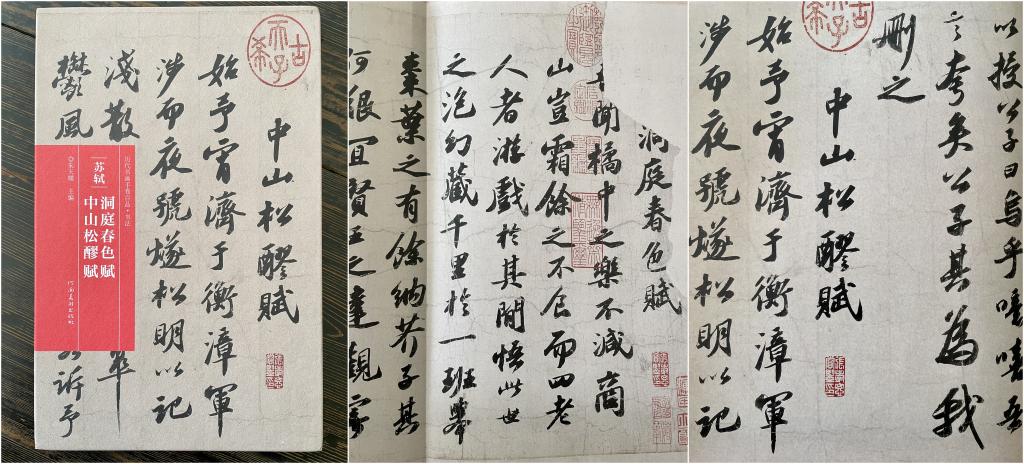 古希天子
中山松醪賦
始予宵濟于衡漳軍
涉而夜號燧松明以記
淺散
鬱風
訴予
历代书画手卷百品·书法
苏轼
洞庭春色赋
中山松醪赋
主编
河南美术出版社
洞庭春色賦
聞橘中之樂不減商
山豈霜餘之不食而四老
人者游戲於其間悟此世
之泡幻藏千里於一班舉
棗葉之有餘納芥子其
何艱宜賢王之達觀寄
以授公子曰烏乎噫嘻吾
言夸矣公子其為我
刪之
中山松醪賦
始予宵濟于衡漳軍
涉而夜號燧松明以記